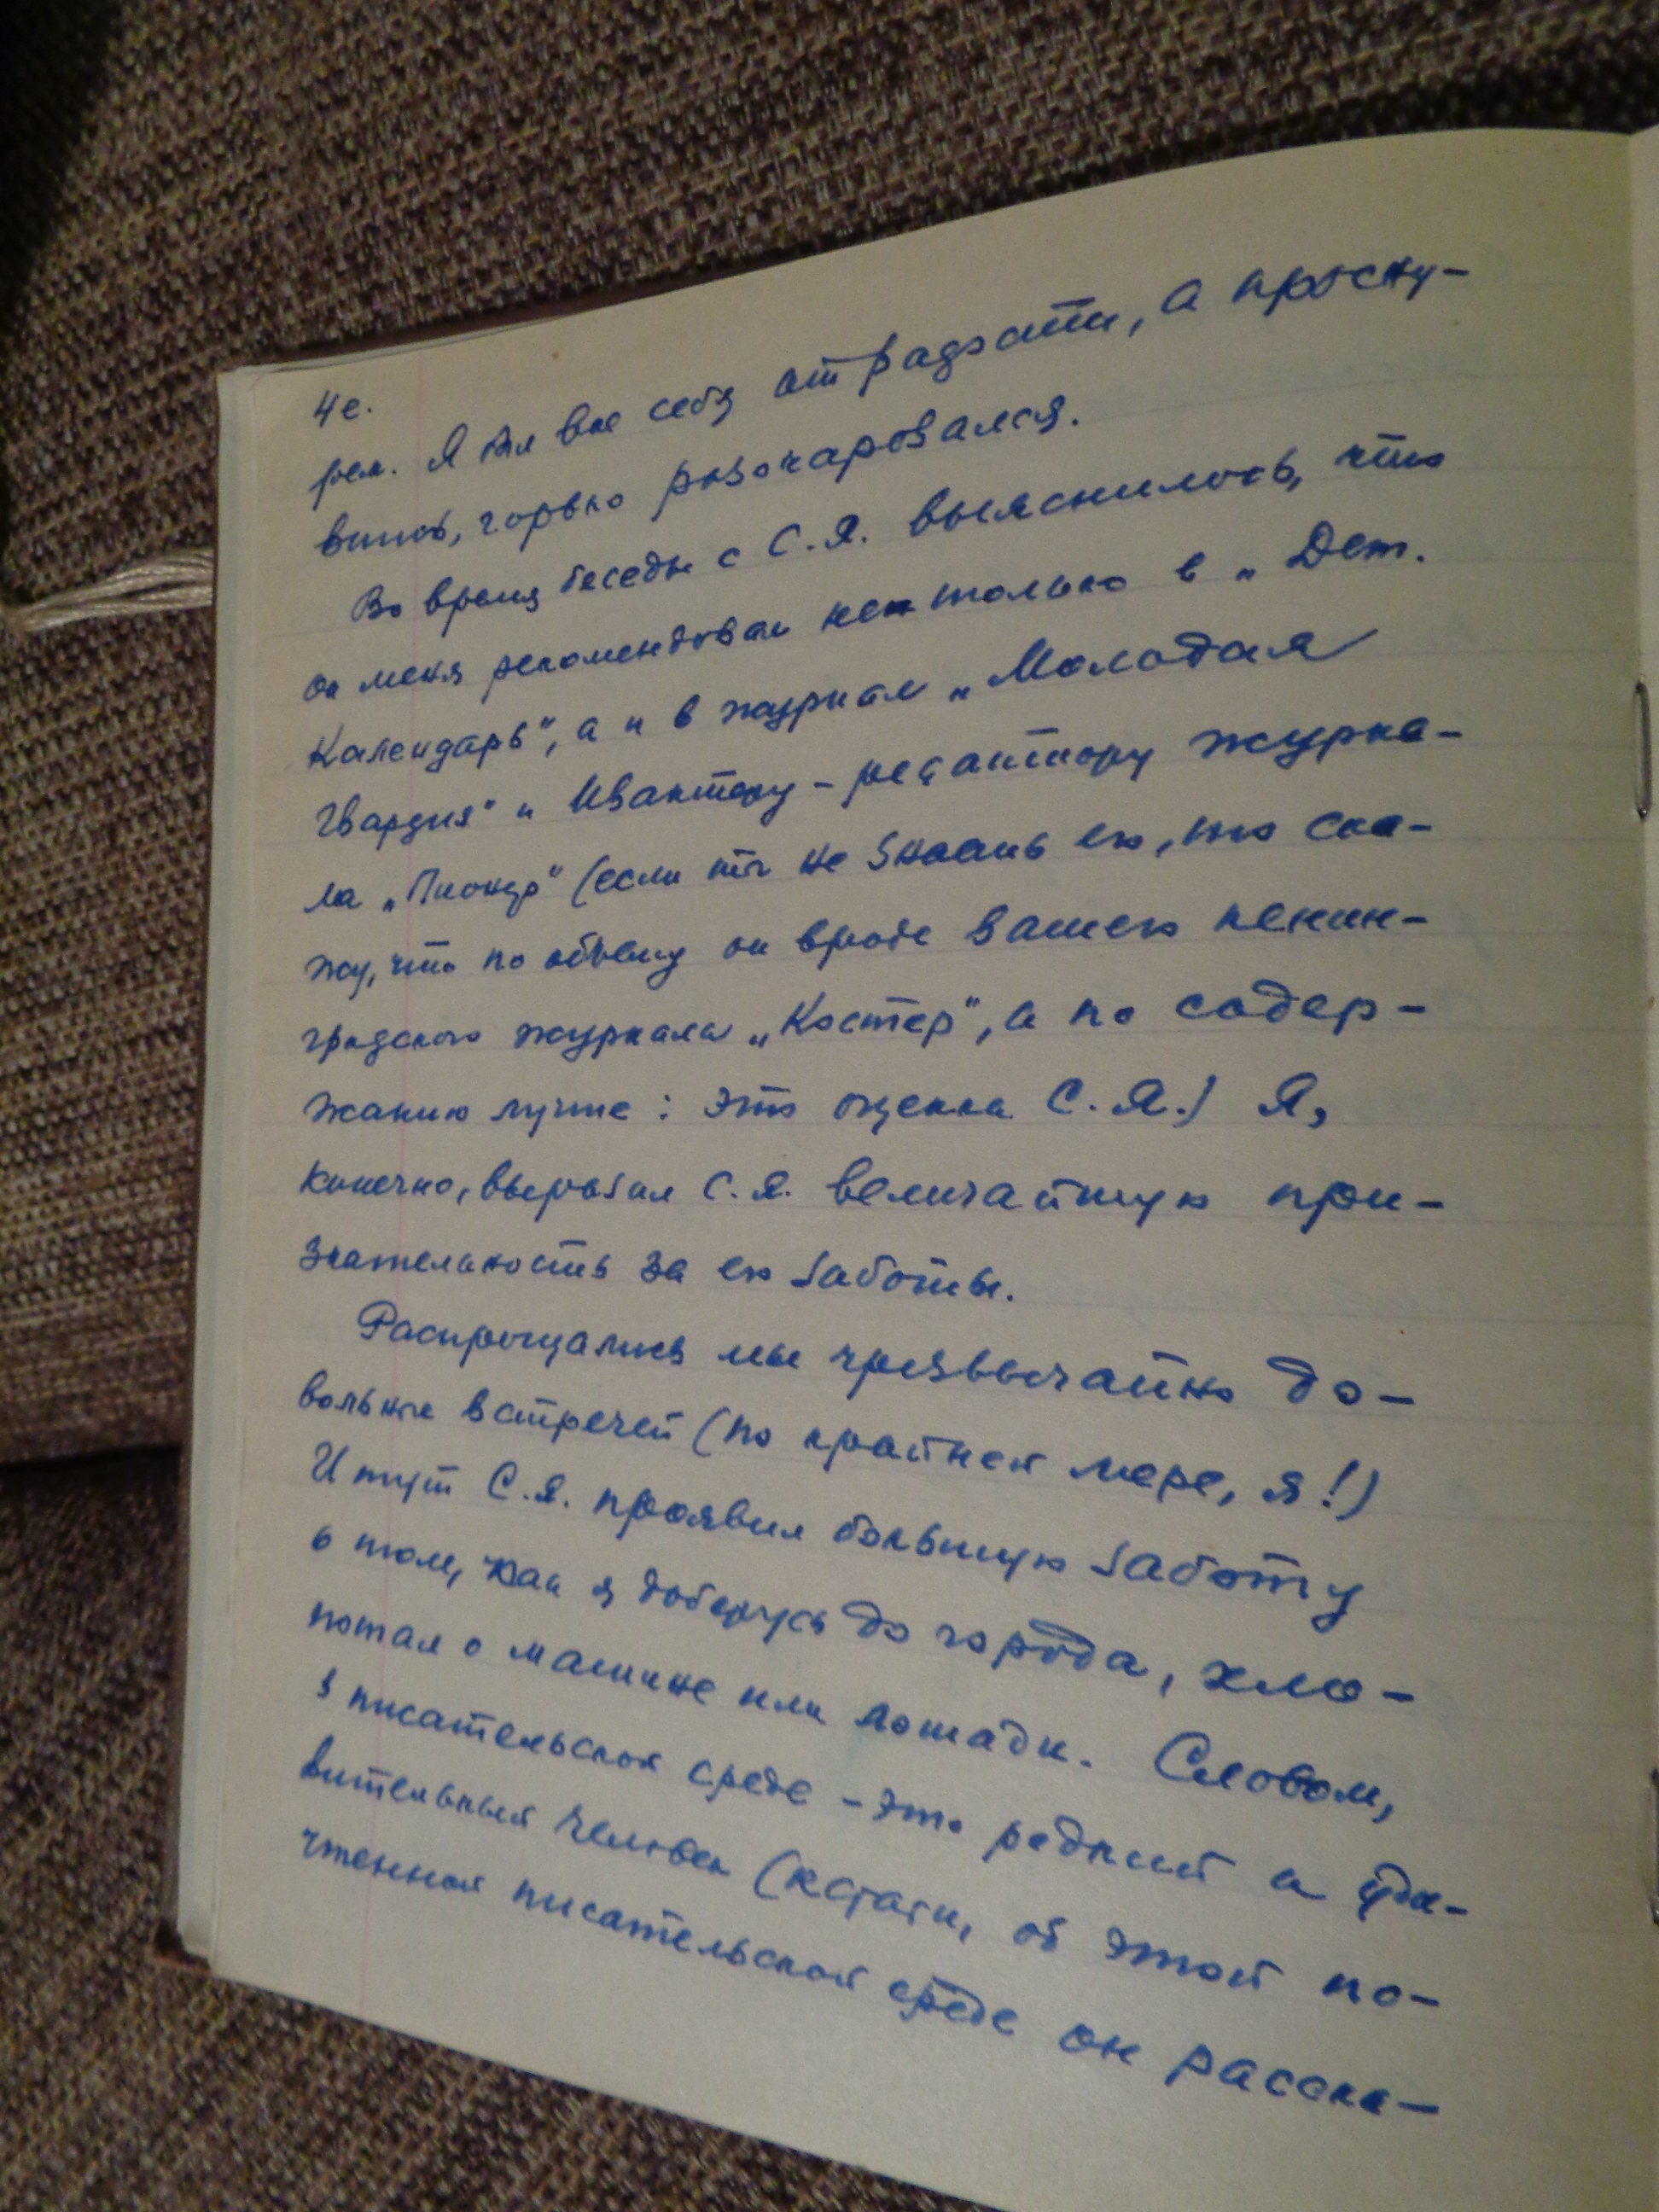 4е.
рем. Я был вне себя от радости, а просну-
вшись, горько разочаровался.
Во время беседы с С.Я. выяснилось, что
он меня рекомендовал не только в „Дет.
Календарь", а и в журнал „Молодая
Гвардия" и Ивантеру – редактору журна-
ла „Пионер" (если ты не знаешь его, то ска-
жу, что по объему он вроде вашего ленин-
градского журнала „Костер", а по содер-
жанию лучше: это оценка С.Я.) Я,
конечно, выразил С.Я. величайшую при-
знательность за его заботы.
Распрощались мы чрезвычайно до-
вольные встречей (по крайней мере, я!)
И тут С.Я. проявил большую заботу
о том, как я доберусь до города, хло-
потал о машине или лошади. Словом,
в писательской среде – это редкий и уди-
вительный человек (кстати, об этой по-
чтенной писательской среде он расска-